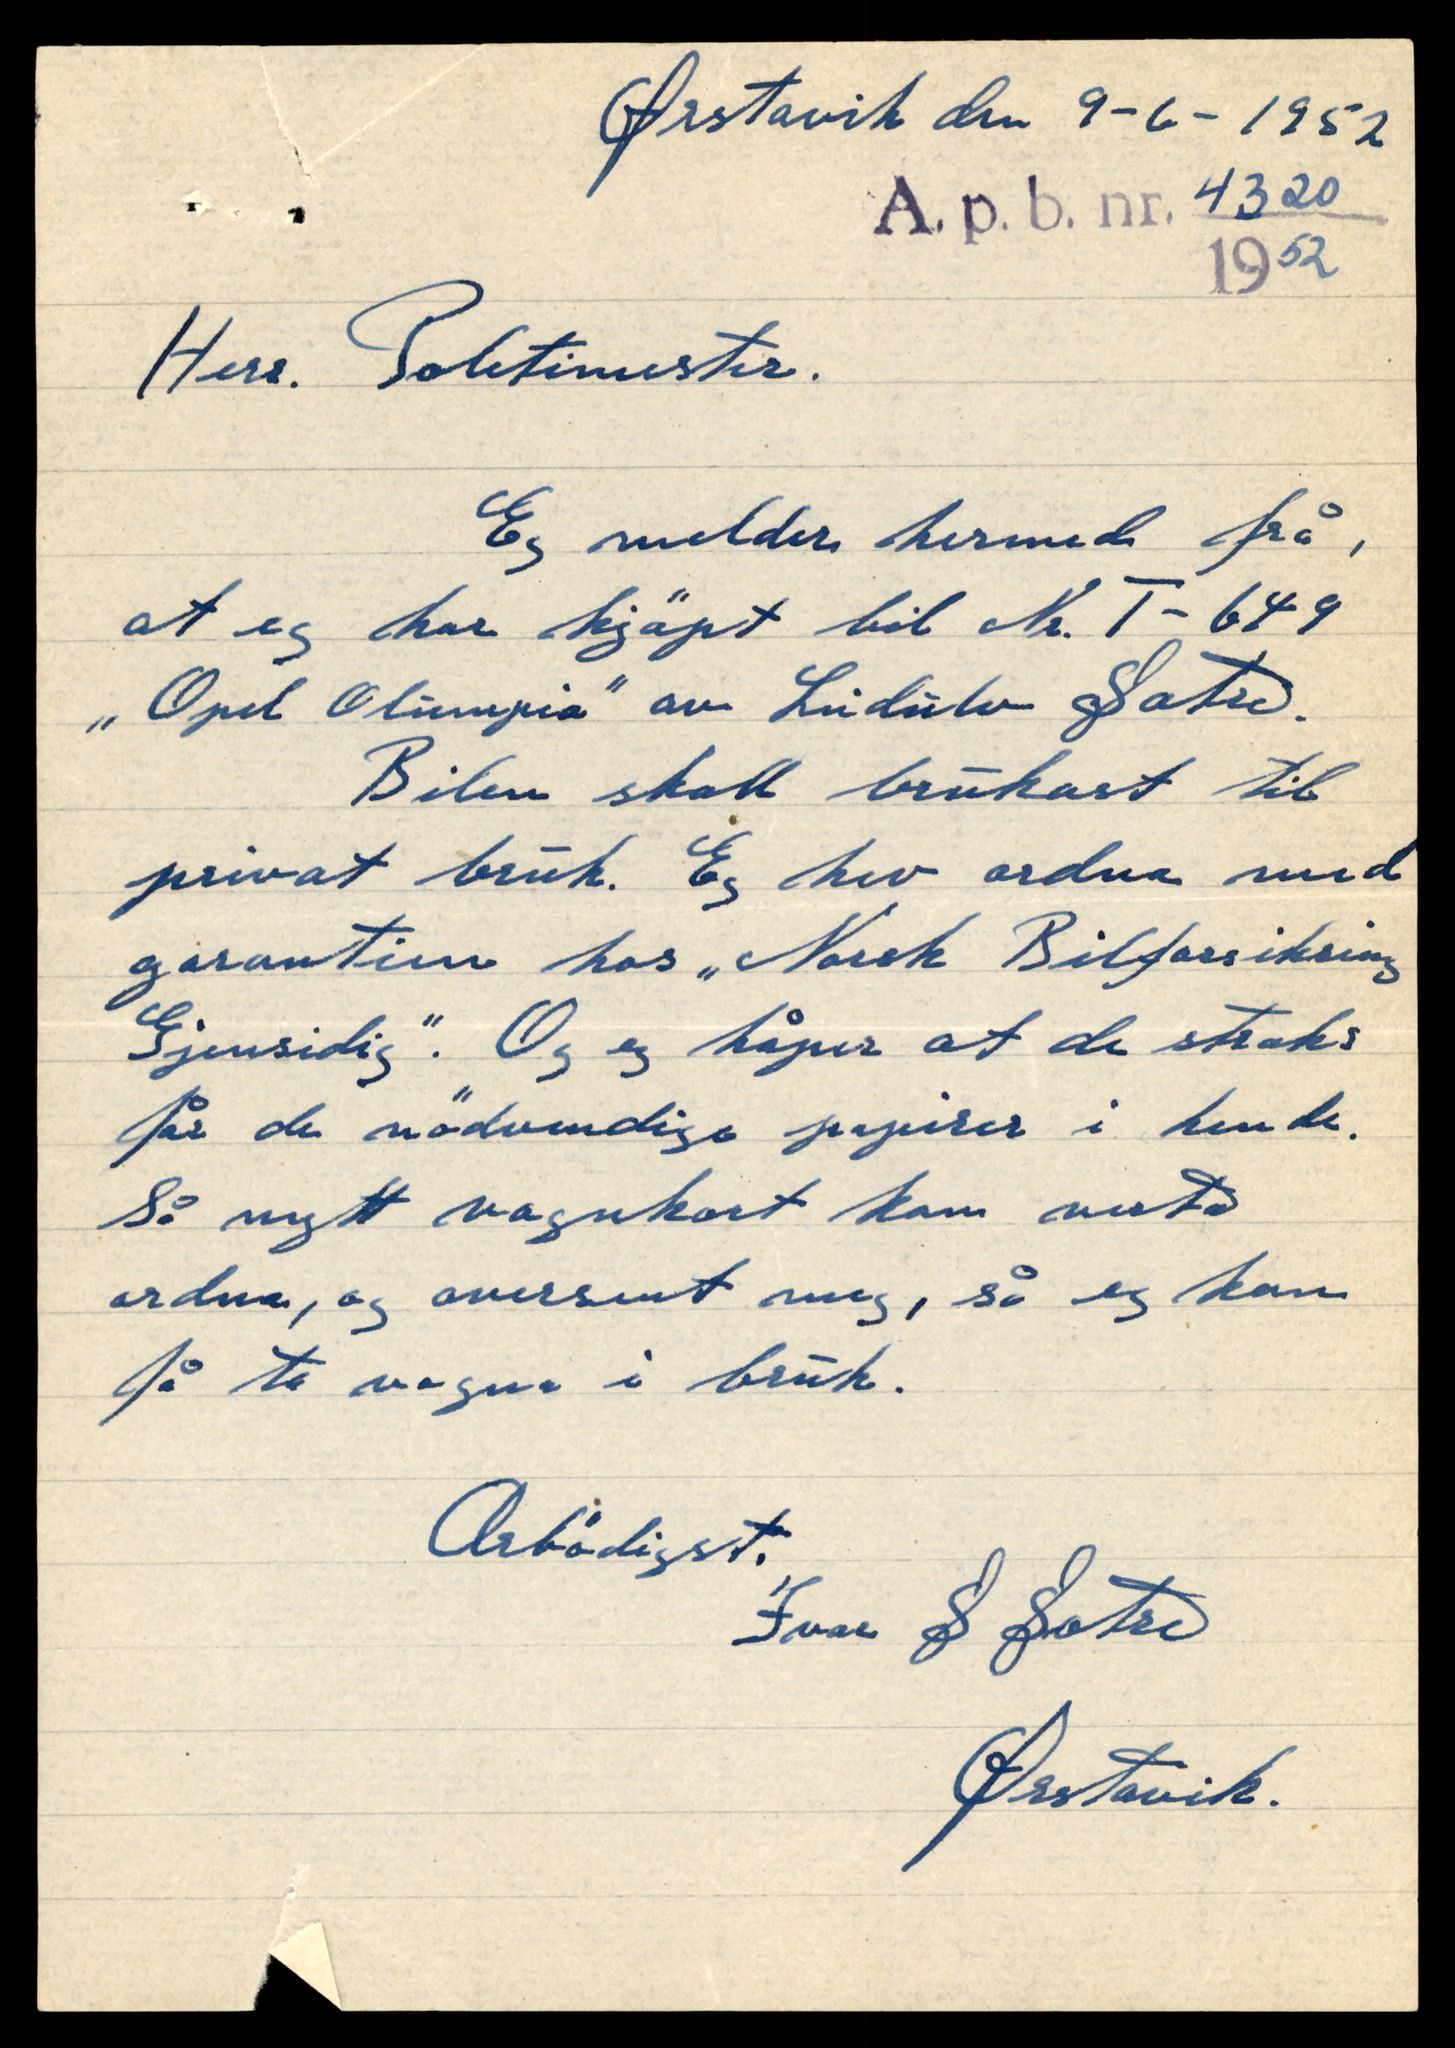 Ørstavik den 9-6-1952
A. p. b. nr. 4320
1952
Herr. Politimester.
Eg melder hermed frå,
at eg har kjöpt bil Nr. T-649
„Opel Olumpia" av Lidulv Sætre.
Bilen skall brukast til
privat bruk. Eg hev ordna med
garantien hos „Norsk Bilforsikring
Gjensidig". Og eg håper at de straks
får de nödvendige papirer i hende.
Så nytt vognkort kan verta
ordna, og oversent meg, så eg kan
få ta vogna i bruk.
Arbödigst.
Ivar S Sætre
Ørstavik.